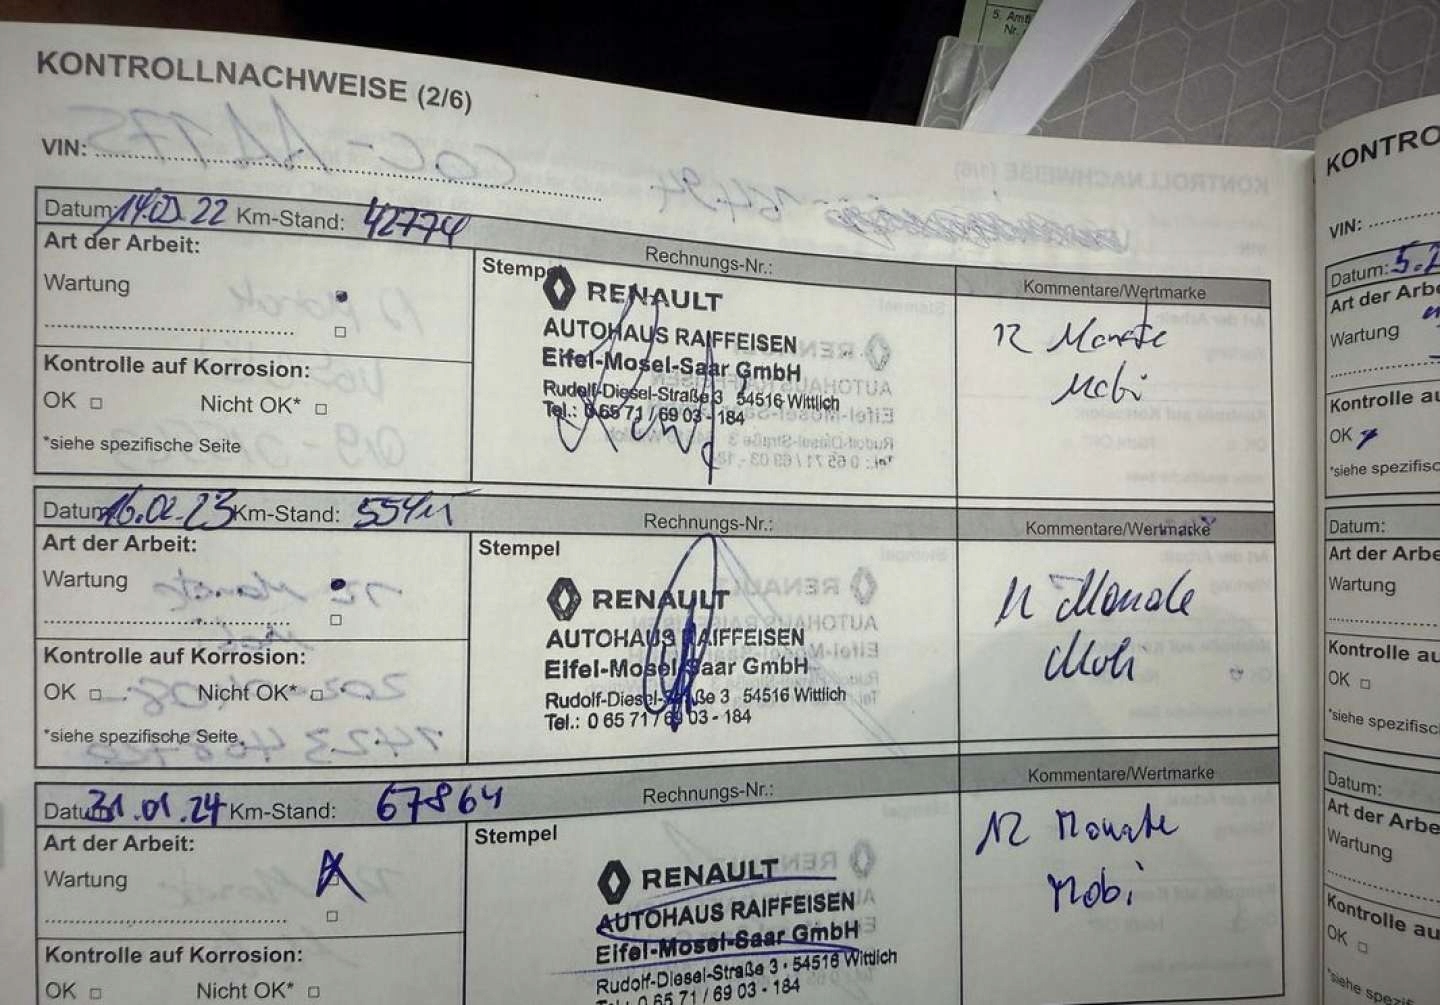 5. Amt
Nr.
KONTROLLNACHWEISE (2/6)
VIN:
Datum: 14.03.22 Km-Stand: 42774
Rechnungs-Nr.:
Art der Arbeit:
Wartung
Kontrolle auf Korrosion:
OK Nicht OK*
*siehe spezifische Seite
Stempel
RENAULT
AUTOHAUS RAIFFEISEN
Eifel-Mosel-Saar GmbH
Rudolf-Diesel-Straße 3 54516 Wittlich
Tel.: 0 65 71 / 69 03 - 184
Kommentare/Wertmarke
12 Monate
Mobi
Datum 16.02.23 Km-Stand:
Rechnungs-Nr.:
Art der Arbeit:
Wartung
Kontrolle auf Korrosion:
OK Nicht OK*
*siehe spezifische Seite
Stempel
RENAULT
AUTOHAUS RAIFFEISEN
Eifel-Mosel-Saar GmbH
Rudolf-Diesel-Straße 3 . 54516 Wittlich
Tel.: 0 65 71 / 69 03 - 184
Kommentare/Wertmarke
12 Monate
Mobi
Datum 31.01.24 Km-Stand: 67864
Rechnungs-Nr.:
Art der Arbeit:
Wartung
Kontrolle auf Korrosion:
OK Nicht OK*
Stempel
RENAULT
AUTOHAUS RAIFFEISEN
Eifel-Mosel-Saar GmbH
Rudolf-Diesel-Straße 3 · 54516 Wittlich
0 65 71 / 69 03 - 184
Kommentare/Wertmarke
12 Monate
Mobi
KONTRO
VIN:
Datum: 5.2
Art der Arbe
Wartung
Kontrolle au
OK
*siehe spezifisc
Datum:
Art der Arbe
Wartung
Kontrolle au
OK
*siehe spezifisc
Datum:
Art der Arbe
Wartung
Kontrolle au
OK
*siehe spezifi